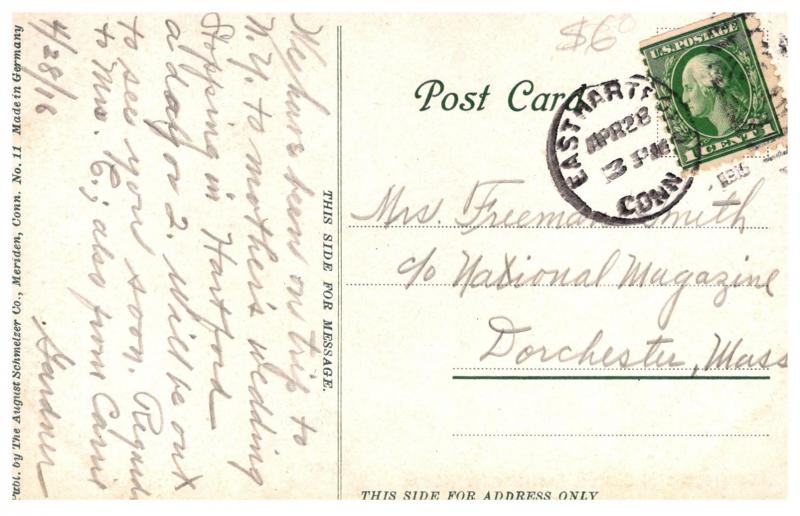 We have been on trip to
N.Y. to mother's wedding
Stopping in Hartford
a day or 2. Will be out
to see you soon. Regrds
to Mrs. C.; also from Carrie
Gardner
4/28/16
THIS SIDE FOR MESSAGE.
Publ. by The August Schmelzer Co., Meriden, Conn. No. 11 Made in Germany
$6
Post Card
EAST HARTF
APR 28
3 PM
CONN
U.S. POSTAGE
1 CENT 1
Mrs. Freeman Smith
c/o National Magazine
Dorchester, Mass
THIS SIDE FOR ADDRESS ONLY